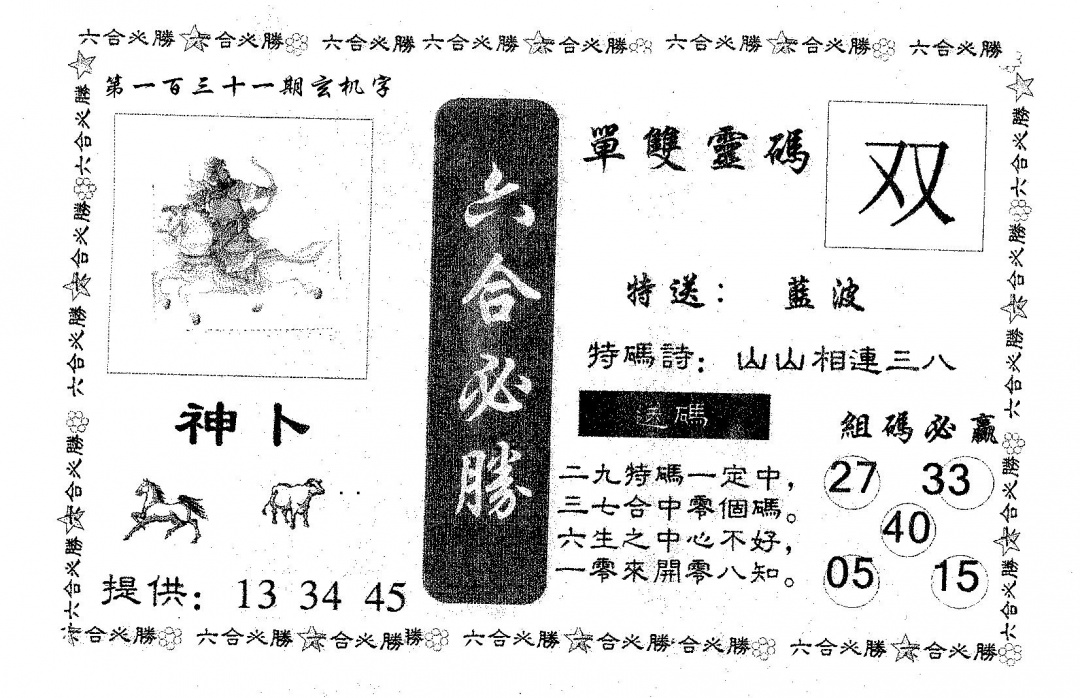 六合必勝 六合必勝 六合必勝 六合必勝 六合必勝 六合必勝 六合必勝 六合必勝
第一百三十一期玄机字
六合必勝
單雙靈碼
双
特送：藍波
特碼詩：山山相連三八
神卜
提供：13 34 45
送碼
二九特碼一定中，
三七合中零個碼。
六生之中心不好，
一零來開零八知。
組碼必贏
27 33
40
05 15
六合必勝 六合必勝 六合必勝 六合必勝
六合必勝 六合必勝 六合必勝 六合必勝 六合必勝
合必勝 六合必勝 合必勝勝 六合必勝 合必勝 合必勝 六合必勝 合必勝